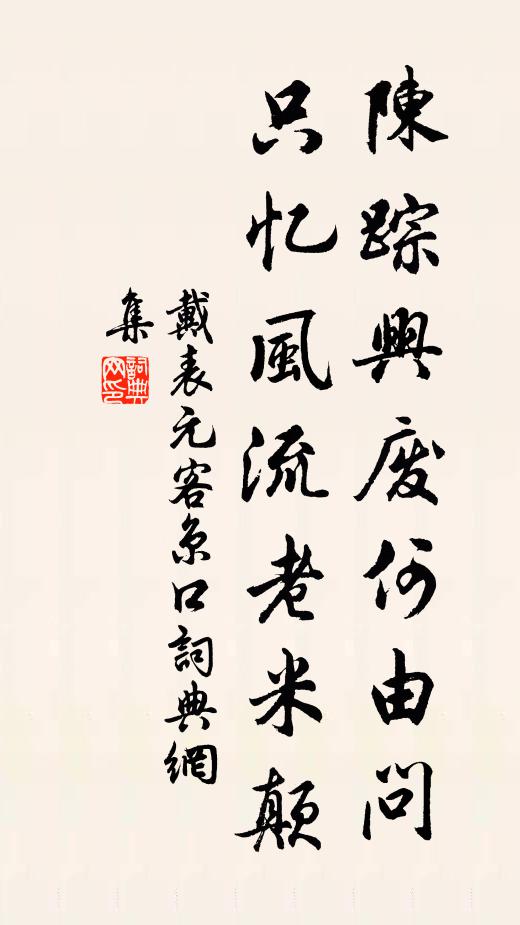 陳踪興廢何由問
只忆風流老米顛
戴表元客京口詞典網
集
詞典网印